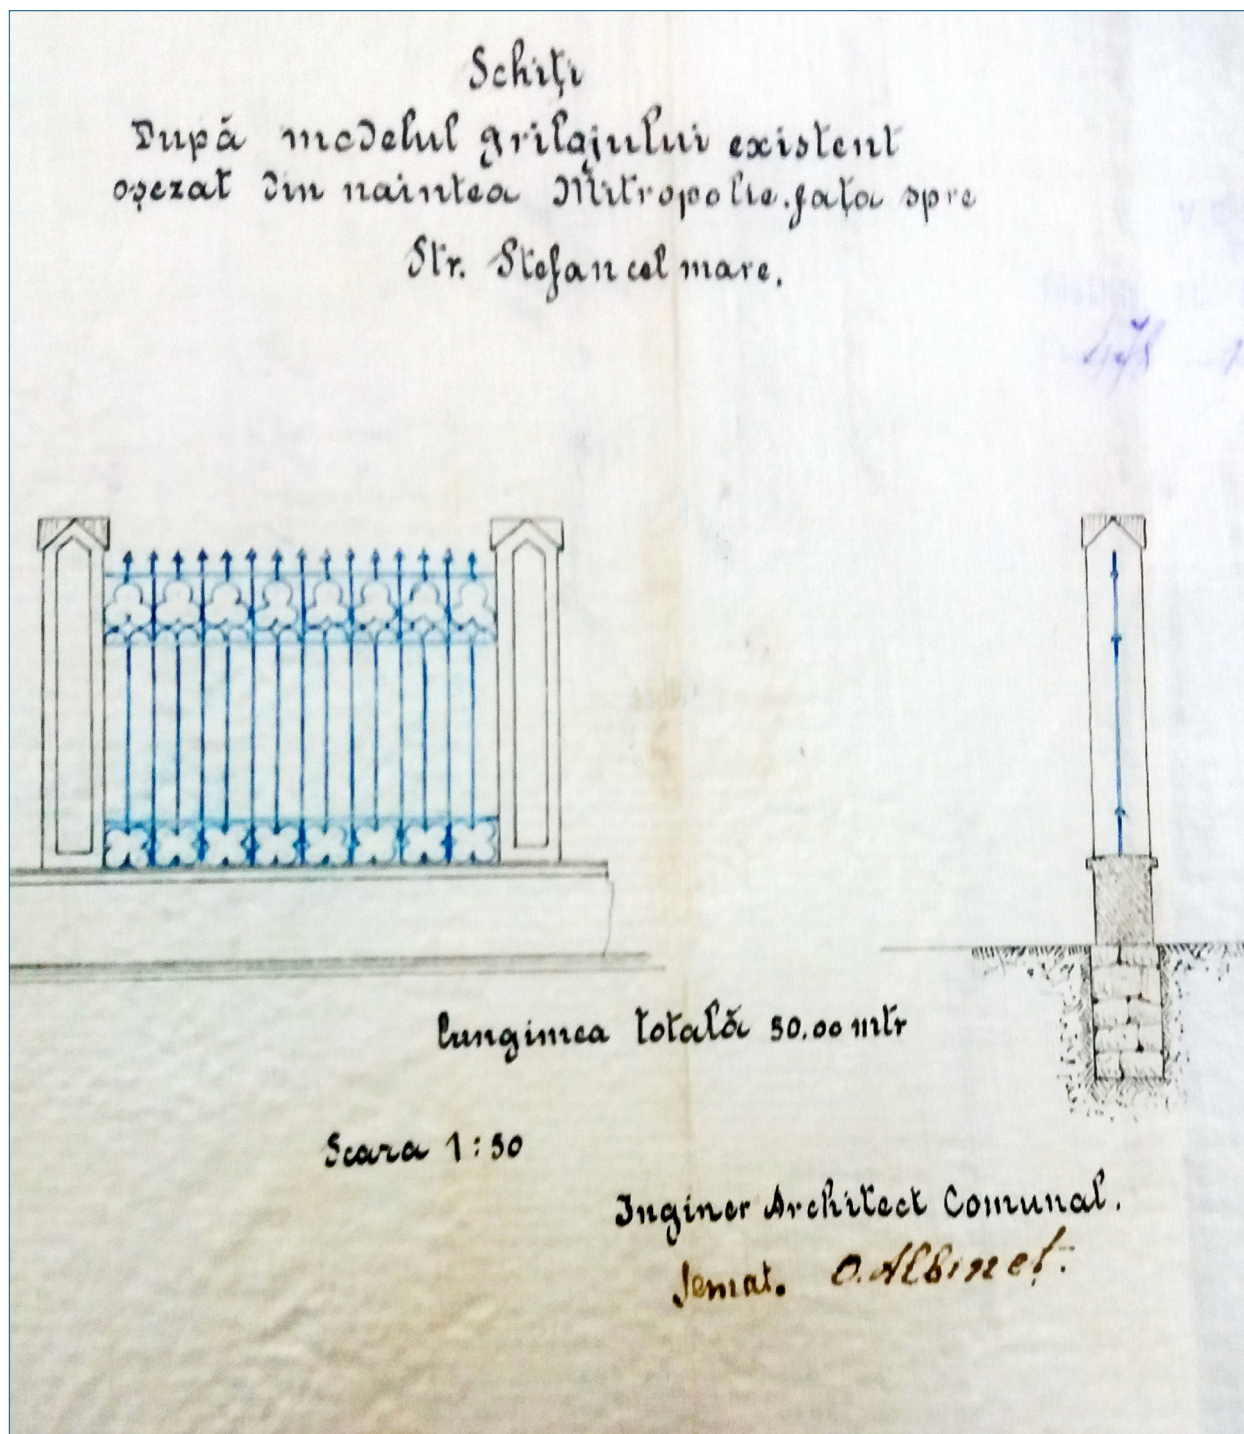 Schiți
După modelul grilajului existent
oșezat din naintea Mitropolie. fața spre
Str. Stefan cel mare.
Lungimea totală 50.00 mtr
Scara 1:50
Inginer Architect Comunal.
Semat. O. Albineț.